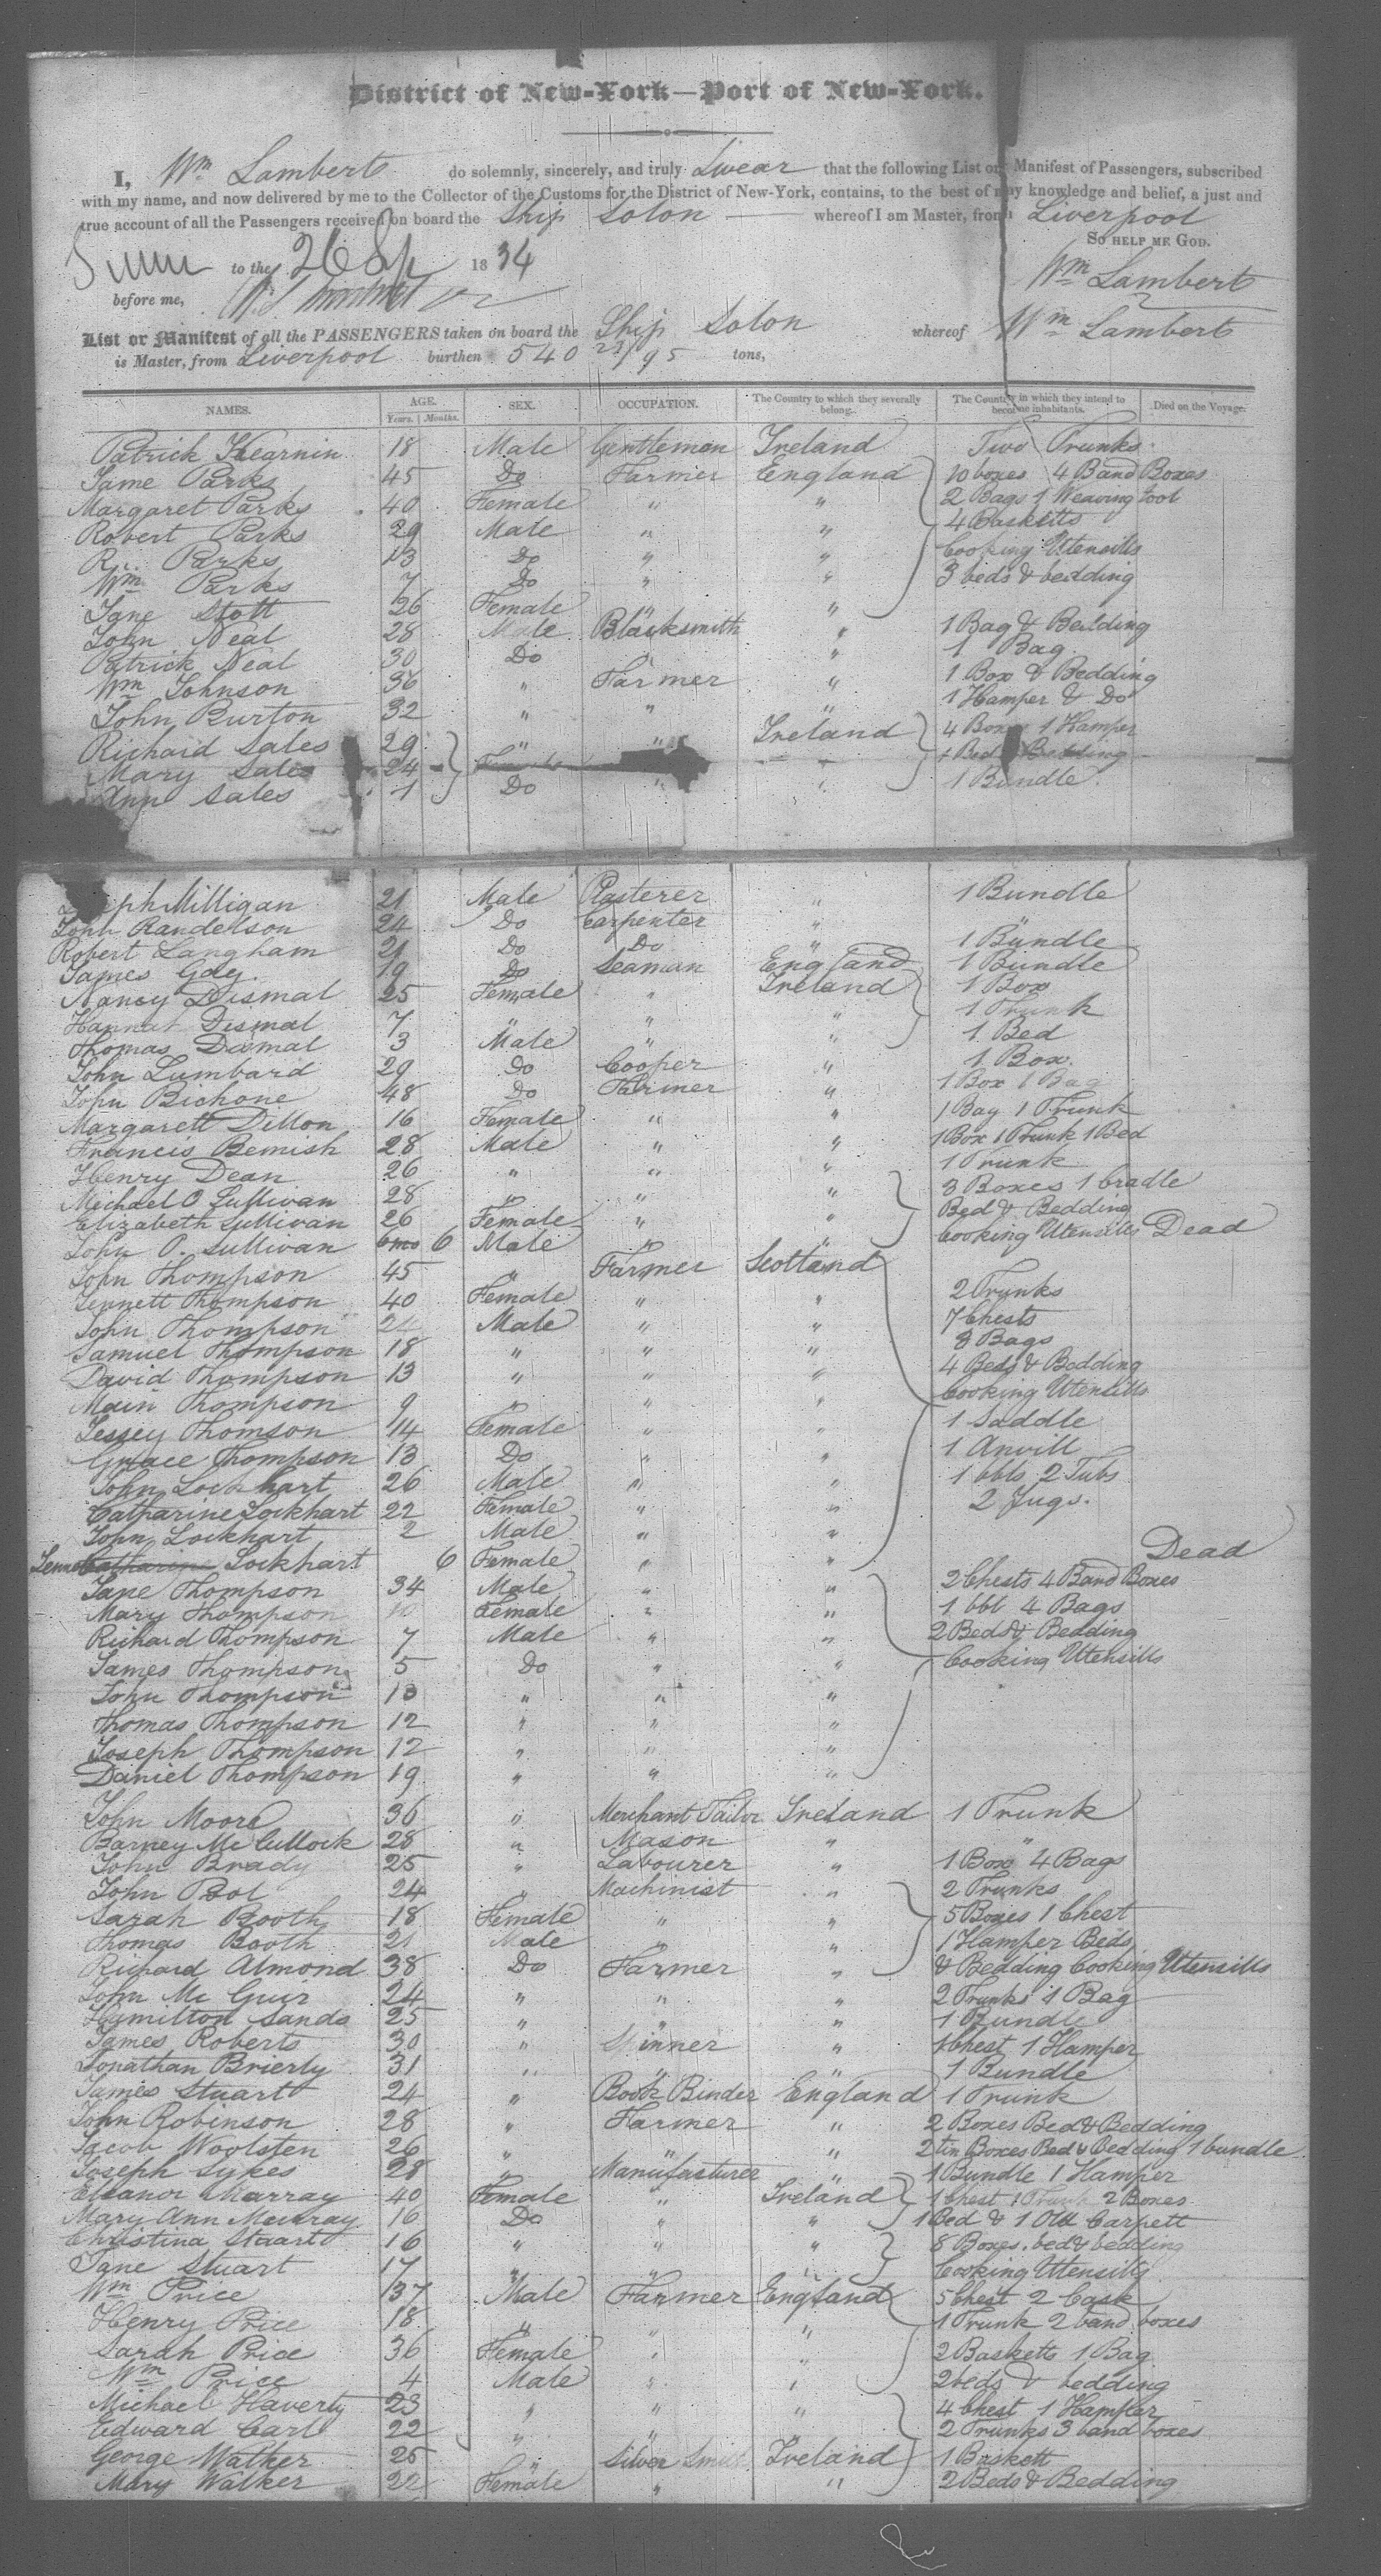 District of New-York—Port of New-York.
I, Wm Lambert do solemnly, sincerely, and truly Swear that the following List or Manifest of Passengers, subscribed
with my name, and now delivered by me to the Collector of the Customs for the District of New-York, contains, to the best of my knowledge and belief, a just and
true account of all the Passengers received on board the Ship Solon whereof I am Master, from Liverpool
So HELP ME GOD.
to the 26 Sep 1834
Wm Lambert
before me,
List or Manifest of all the PASSENGERS taken on board the Ship Solon whereof Wm Lambert
is Master, from Liverpool burthen 540 23/95 tons,
NAMES. AGE. Years. Months. SEX. OCCUPATION. The Country to which they severally belong. The Country in which they intend to become inhabitants. Died on the Voyage.
Patrick Kearnin 18 Male Gentleman Ireland Two Trunks
Jame Parks 45 Do Farmer England 10 boxes 4 Band Boxes
Margaret Parks 40 Female " " 2 Bags 1 Weaving tool
Robert Parks 29 Male " " 4 Basketts
R. Parks 13 Do " " Cooking Utensills
Wm Parks 7 Do " " 3 beds & bedding
Jane Stott 26 Female " "
John Neal 28 Male Blacksmith " 1 Bag & Bedding
Patrick Neal 30 Do " " 1 Bag
Wm Johnson 36 " Farmer " 1 Box & Bedding
John Burton 32 " " " 1 Hamper & Do
Richard Sales 29 " " Ireland 4 Boxes 1 Hamper
Mary Sales 24 Bedding
Ann Sales 1 Do " " 1 Bundle
Milligan 21 Male Plasterer " 1 Bundle
John Randelson 24 Do Carpenter "
Robert Langham 21 Do Do " 1 Bundle
James Gay. 19 Do Seaman England 1 Bundle
Nancy Dismal 25 Female " Ireland 1 Box
Hannah Dismal 7 " " " 1 Trunk
Thomas Dismal 3 Male " " 1 Bed
John Lumbard 29 Do Cooper " 1 Box
John Bichone 48 Do Farmer " 1 Box 1 Bag
Margarett Dillon 16 Female " " 1 Bag 1 Trunk
Francis Bemish 28 Male " " 1 Box 1 Trunk 1 Bed
Henry Dean 26 " " " 1 Trunk
Michael O Sullivan 28 " " " 3 Boxes 1 Cradle
Elizabeth Sullivan 26 Female " " Bed & Bedding
John O. Sullivan 6 Male " " Cooking Utensills Dead
John Thompson 45 " Farmer Scotland
Jennett Thompson 40 Female " " 2 Trunks
John Thompson Male " " 7 Chests
Samuel Thompson 18 " " " 8 Bags
David Thompson 13 " " " 4 Beds & Bedding
Main Thompson 9 " " " Cooking Utensills
Jessey Thomson 14 Female " " 1 Saddle
Grace Thompson 13 Do " " 1 Anvill
John Lockhart 26 Male " " 1 bbls 2 Tubs
Catharine Lockhart 22 Female " " 2 Jugs.
John Lockhart 2 Male " "
Lockhart 6 Female " " Dead
Jane Thompson 34 Male " " 2 Chests 4 Band Boxes
Mary Thompson Female " " 1 bbl 4 Bags
Richard Thompson 7 Male " " 2 Beds & Bedding
James Thompson 5 Do " " Cooking Utensills
John Thompson 13 " " "
Thomas Thompson 12 " " "
Joseph Thompson 12 " " "
Daniel Thompson 19 " " "
John Moore 36 " Merchant Tailor Ireland 1 Trunk
Barney Mc Cullock 28 " Mason " "
John Brady 25 " Labourer " 1 Box 4 Bags
John Bol 24 " Machinist " 2 Trunks
Sarah Booth 18 Female " " 5 Boxes 1 Chest
Thomas Booth 21 Male " " 1 Hamper Beds
Richard Almond 38 Do Farmer " & Bedding Cooking Utensills
John Mc Guir 24 " " " 2 Trunks 1 Bag
Hamilton Sands 25 " " " 1 Bundle
James Roberts 30 " Spinner " 1 Chest 1 Hamper
Jonathan Brierly 31 " " " 1 Bundle
James Stuart 24 " Book Binder England 1 Trunk
John Robinson 28 " Farmer " 2 Boxes Bed & Bedding
Jacob Woolsten 26 " " " 2 tin Boxes Bed & Bedding 1 bundle
Joseph Sykes 28 " Manufacturer " 1 Bundle 1 Hamper
Eleanor Murray 40 Female " Ireland 1 Chest 1 Trunk 2 Boxes
Mary Ann Murray 16 Do " " 1 Bed & 1 Old Carpett
Christina Stuart 16 " " " 8 Boxes. bed & bedding
Jane Stuart 17 " " " Cooking Utensills
Wm Price 37 Male Farmer England 5 Chest 2 Cask
Henry Price 18 " " " 1 Trunk 2 band boxes
Sarah Price 36 Female " " 2 Basketts 1 Bag
Wm Price 4 Male " " 2 beds & bedding
Michael Haverty 23 " " " 4 Chest 1 Hamper
Edward Carl 22 " " 2 Trunks 3 band boxes
George Walker 25 " Silver Smith Ireland 1 Baskett
Mary Walker 22 Female " " 2 Beds & Bedding